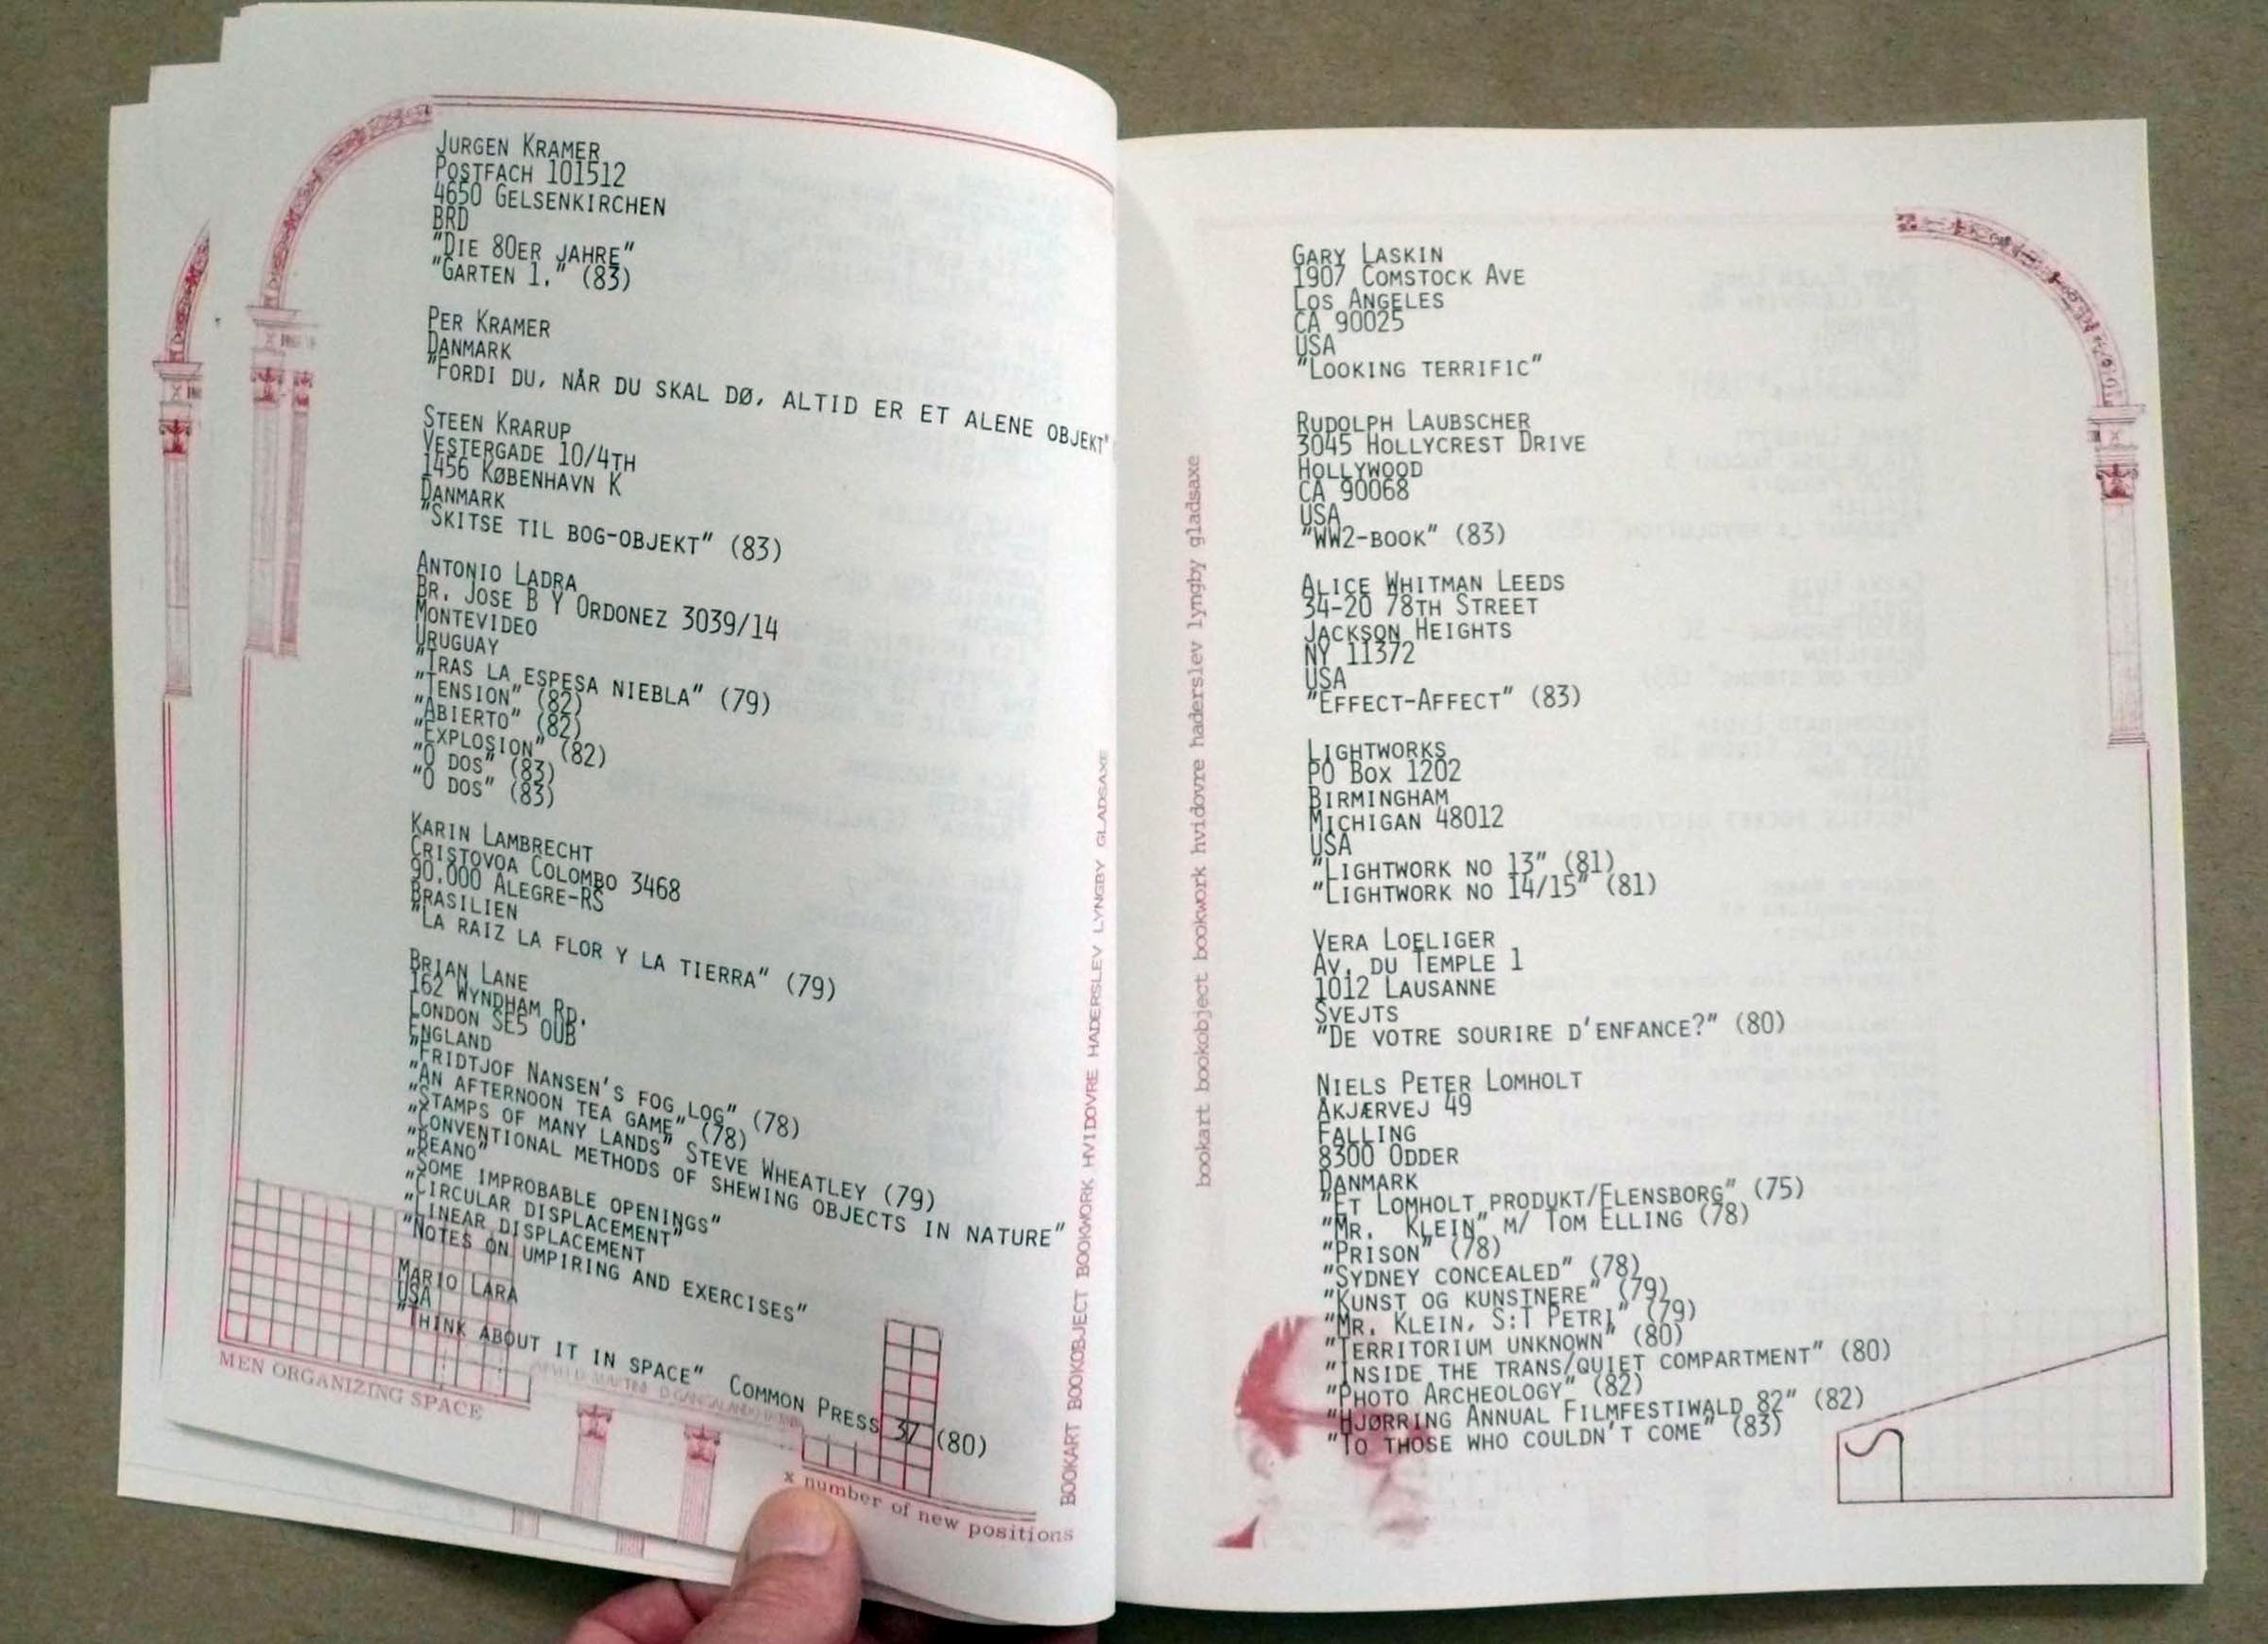 JURGEN KRAMER
POSTFACH 101512
4650 GELSENKIRCHEN
BRD
"DIE 80ER JAHRE"
"GARTEN 1." (83)
PER KRAMER
DANMARK
"FORDI DU, NÅR DU SKAL DØ, ALTID ER ET ALENE OBJEKT"
STEEN KRARUP
VESTERGADE 10/4TH
1456 KØBENHAVN K
DANMARK
"SKITSE TIL BOG-OBJEKT" (83)
ANTONIO LADRA
BR. JOSE B Y ORDONEZ 3039/14
MONTEVIDEO
URUGUAY
"TRAS LA ESPESA NIEBLA" (79)
"TENSION" (82)
"ABIERTO" (82)
"EXPLOSION" (82)
"O DOS" (83)
"O DOS" (83)
KARIN LAMBRECHT
CRISTOVOA COLOMBO 3468
90.000 ALEGRE-RS
BRASILIEN
"LA RAIZ LA FLOR Y LA TIERRA" (79)
BRIAN LANE
162 WYNDHAM RD.
LONDON SE5 0UB
ENGLAND
"FRIDTJOF NANSEN'S FOG LOG" (78)
"AN AFTERNOON TEA GAME" (78)
"STAMPS OF MANY LANDS" STEVE WHEATLEY (79)
"CONVENTIONAL METHODS OF SHEWING OBJECTS IN NATURE"
"BEANO"
"SOME IMPROBABLE OPENINGS"
"CIRCULAR DISPLACEMENT"
"LINEAR DISPLACEMENT
"NOTES ON UMPIRING AND EXERCISES"
MARIO LARA
USA
"THINK ABOUT IT IN SPACE" COMMON PRESS 37 (80)
MEN ORGANIZING SPACE
x number of new positions
BOOKART BOOKOBJECT BOOKWORK HVIDOVRE HADERSLEV LYNGBY GLADSAXE
bookart bookobject bookwork hvidovre haderslev lyngby gladsaxe
GARY LASKIN
1907 COMSTOCK AVE
LOS ANGELES
CA 90025
USA
"LOOKING TERRIFIC"
RUDOLPH LAUBSCHER
3045 HOLLYCREST DRIVE
HOLLYWOOD
CA 90068
USA
"WW2-BOOK" (83)
ALICE WHITMAN LEEDS
34-20 78TH STREET
JACKSON HEIGHTS
NY 11372
USA
"EFFECT-AFFECT" (83)
LIGHTWORKS
PO BOX 1202
BIRMINGHAM
MICHIGAN 48012
USA
"LIGHTWORK NO 13" (81)
"LIGHTWORK NO 14/15" (81)
VERA LOELIGER
AV. DU TEMPLE 1
1012 LAUSANNE
SVEJTS
"DE VOTRE SOURIRE D'ENFANCE?" (80)
NIELS PETER LOMHOLT
AKJÆRVEJ 49
FALLING
8300 ODDER
DANMARK
"ET LOMHOLT PRODUKT/FLENSBORG" (75)
"MR. KLEIN" M/ TOM ELLING (78)
"PRISON" (78)
"SYDNEY CONCEALED" (78)
"KUNST OG KUNSTNERE" (79)
"MR. KLEIN, S:T PETRI" (79)
"TERRITORIUM UNKNOWN" (80)
"INSIDE THE TRANS/QUIET COMPARTMENT" (80)
"PHOTO ARCHEOLOGY" (82)
"HJØRRING ANNUAL FILMFESTIWALD 82" (82)
"TO THOSE WHO COULDN'T COME" (83)